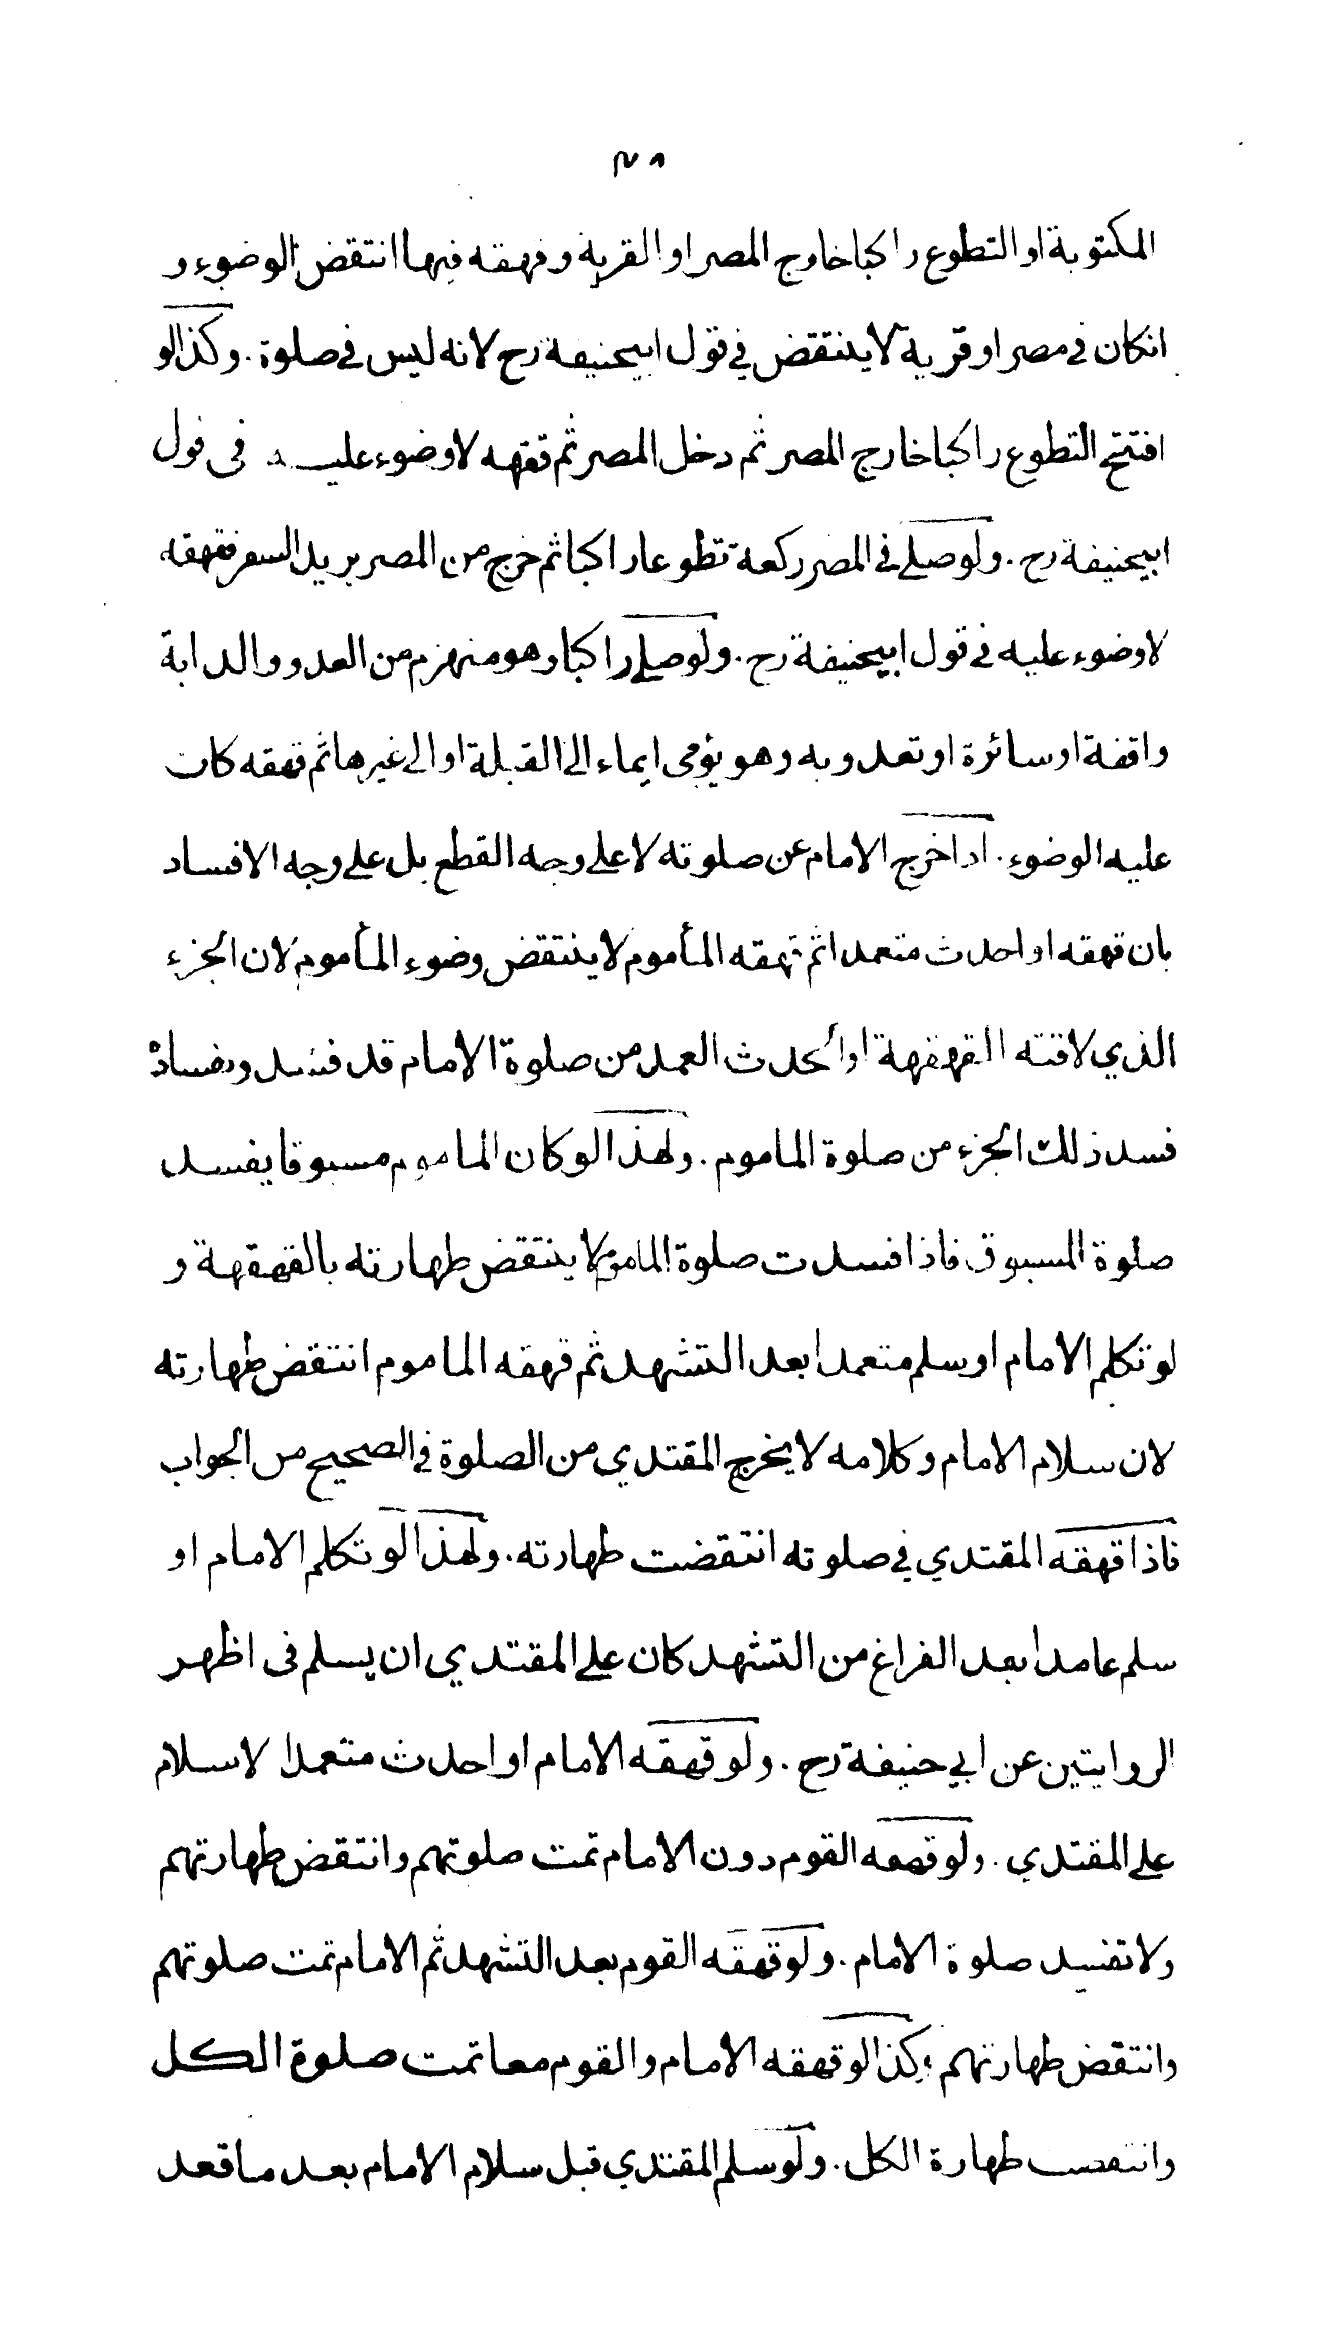 ٣٨
المكتوبة او التطوع راكبا خارج المصر او القرية و قهقه فيها انتقض الوضوء و
انكان في مصر او قرية لا ينتقض في قول ابيحنيفة رح لانه ليس في صلوة . وكذا لو
افتتح التطوع راكبا خارج المصر ثم دخل المصر ثم قهقه لا وضوء عليه في قول
ابيحنيفة رح . ولو صلے في المصر ركعة تطوعا راكبا ثم خرج من المصر يريد السفر فقهقه
لا وضوء عليه في قول ابيحنيفة رح . ولو صلے راكبا وهو منهزم من العدو والدابة
واقفة او سائرة او تعدو به وهو يؤمي ايماء الى القبلة او الى غيرها ثم قهقه كان
عليه الوضوء . اذا خرج الامام عن صلوته لا على وجه القطع بل على وجه الافساد
بان قهقه او احدث متعمدا ثم قهقه المأموم لا ينتقض وضوء المأموم لان الجزء
الذي لاقته القهقهة او الحدث العمد من صلوة الامام قد فسد وبفساده
فسد ذلك الجزء من صلوة الماموم . ولهذا لو كان الماموم مسبوقا يفسد
صلوة المسبوق فاذا فسدت صلوة الماموم لا ينتقض طهارته بالقهقهة و
لو تكلم الامام او سلم متعمدا بعد التشهد ثم قهقه الماموم انتقض طهارته
لان سلام الامام وكلامه لا يخرج المقتدي من الصلوة في الصحيح من الجواب
فاذا قهقه المقتدي في صلوته انتقضت طهارته . ولهذا لو تكلم الامام او
سلم عامدا بعد الفراغ من التشهد كان على المقتدي ان يسلم في اظهر
الروايتين عن ابي حنيفة رح . ولو قهقه الامام او احدث متعمدا لا سلام
على المقتدي . ولو قهقه القوم دون الامام تمت صلوتهم وانتقض طهارتهم
ولا تفسد صلوة الامام . ولو قهقه القوم بعد التشهد ثم الامام تمت صلوتهم
وانتقض طهارتهم وكذا لو قهقه الامام والقوم معا تمت صلوة الكل
وانتقضت طهارة الكل . ولو سلم المقتدي قبل سلام الامام بعد ما قعد